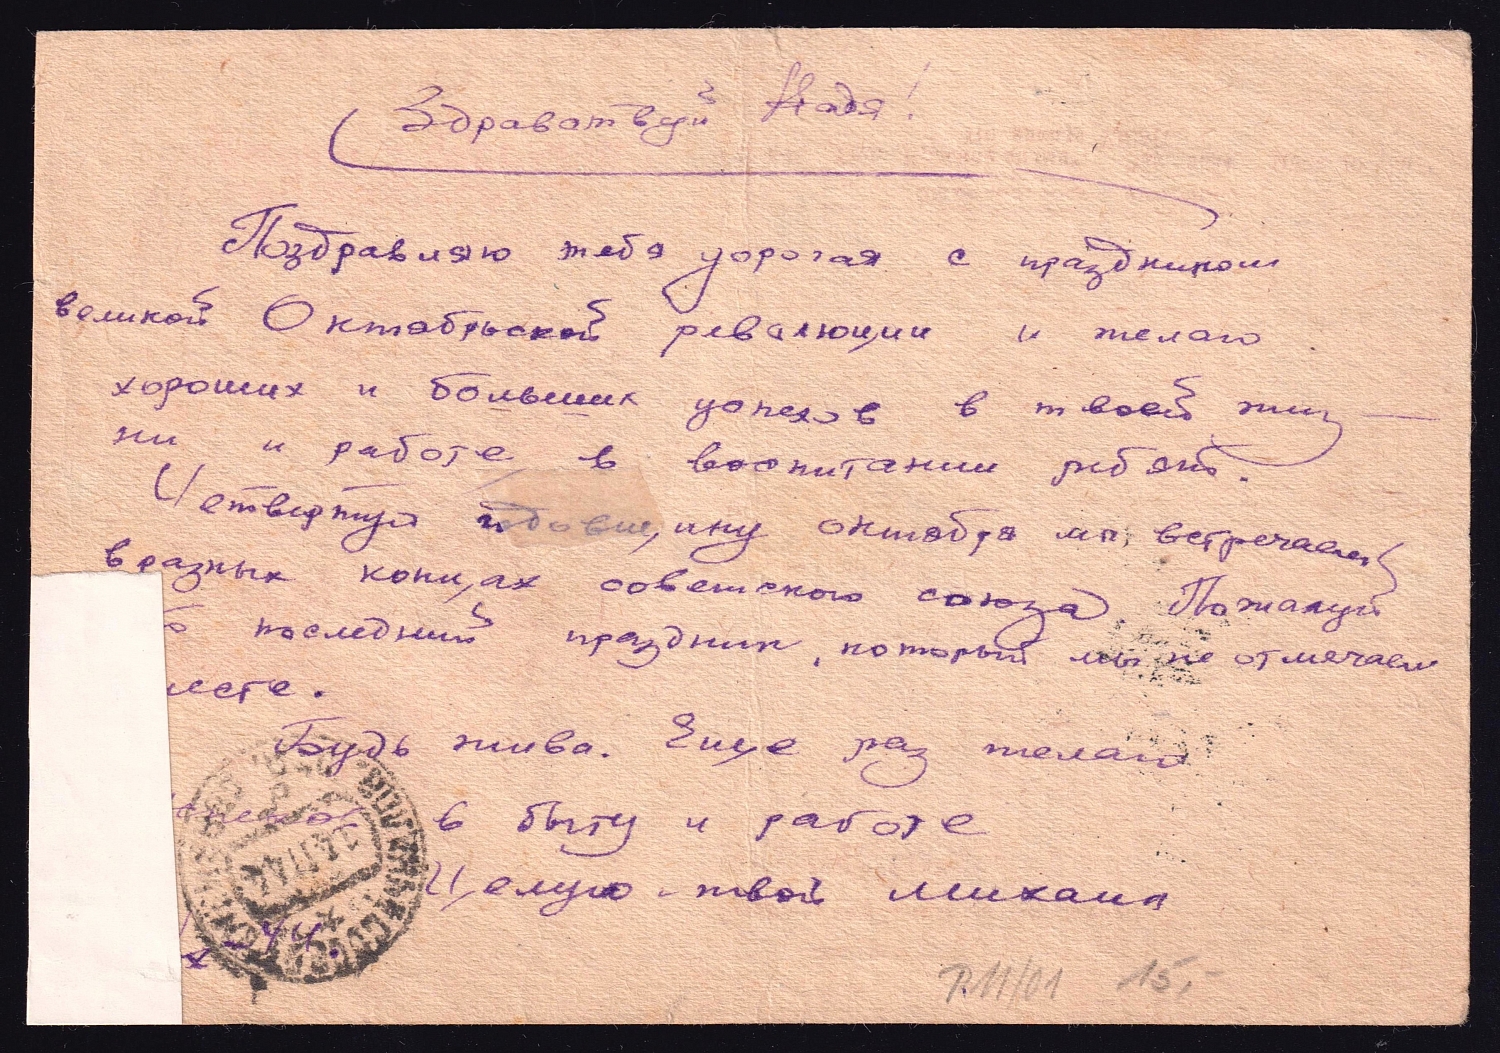 Здраватвуй Надя!
Поздравляю тебя дорогая с праздником
великой Октябрьской революции и желаю
хороших и больших успехов в твоей жиз-
ни и работе в воспитании ребят.
Четвертую годовщину октября мы встречаем
в разных концах советского союза Пожалуй
последний праздник, который мы не отмечаем
месте.
Будь жива. Еще раз желаю
успехов в быту и работе
Целую - твой Михаил
44.
P.11/01 15,-